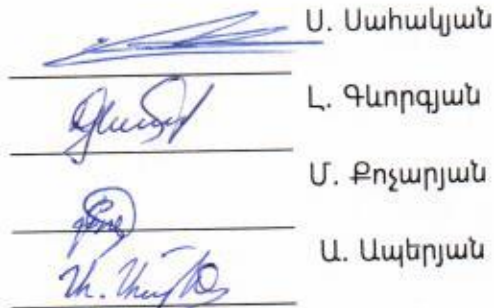 Ս. Սահակյան
Լ. Գևորգյան
Մ. Քոչարյան
Ա. Ապերյան